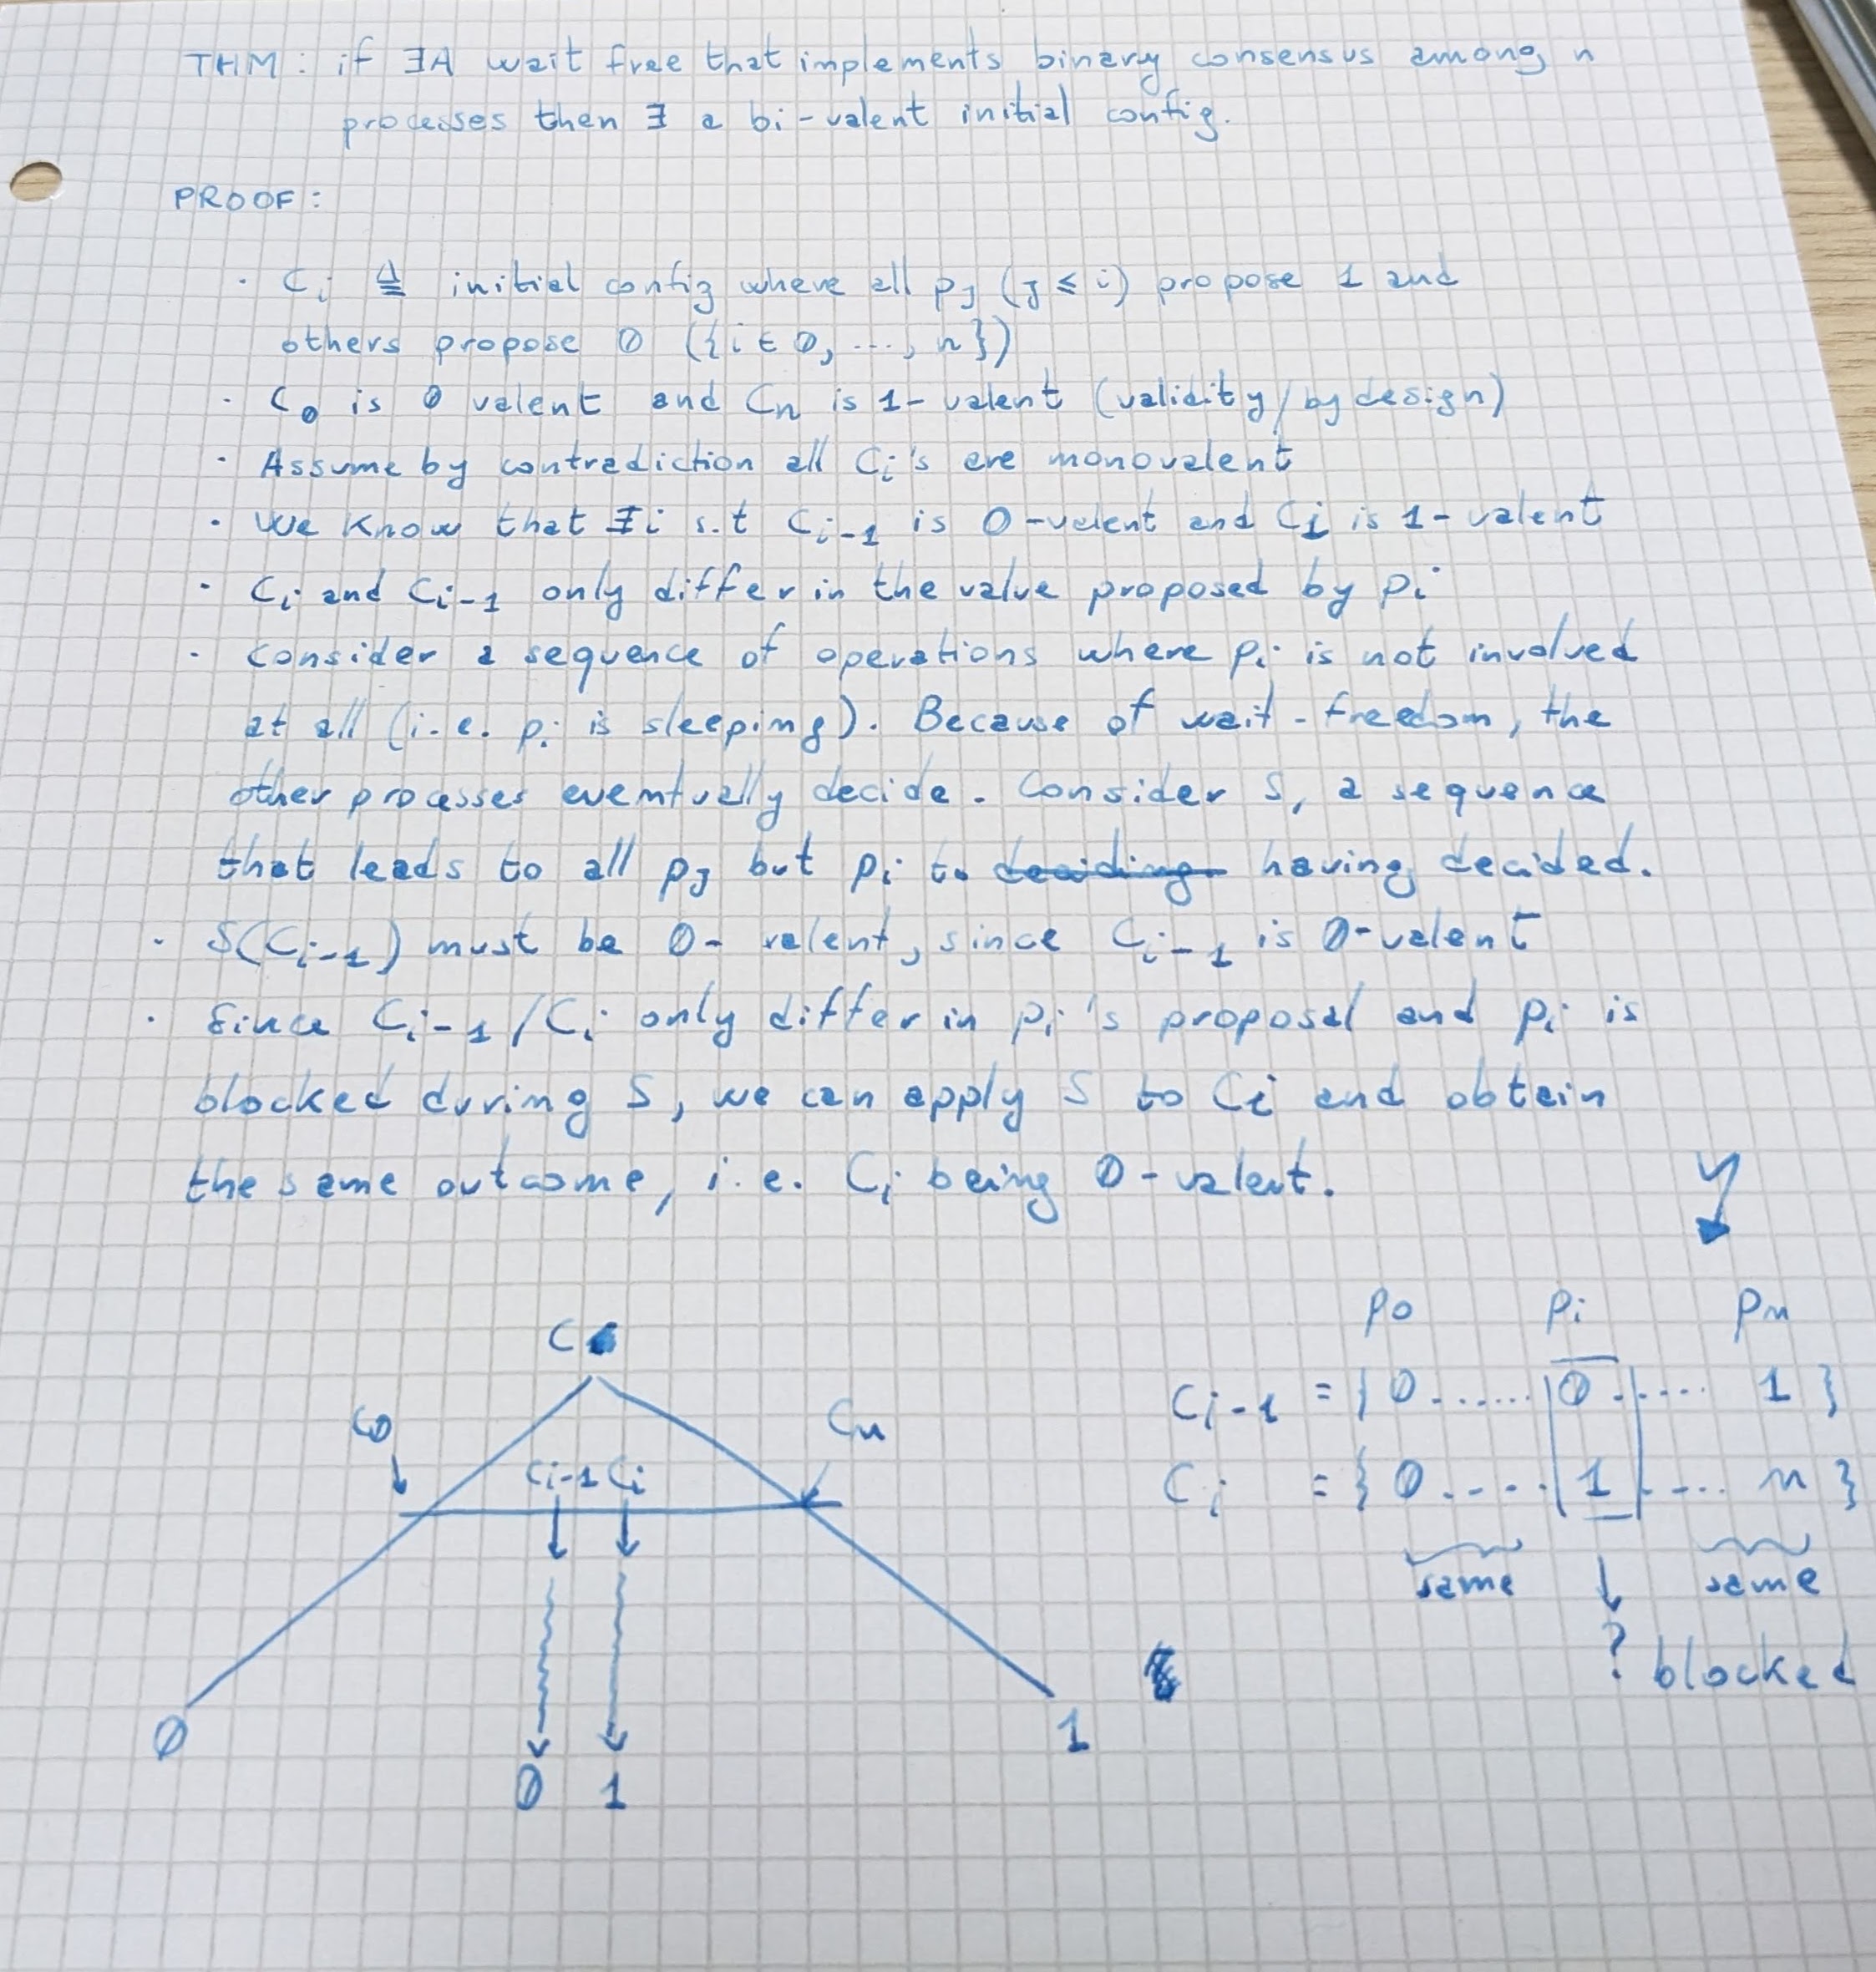 THM: if ∃A wait free that implements binary consensus among n
processes then ∃ a bi-valent initial config.
PROOF:
· Ci ≜ initial config where all pj (j ≤ i) propose 1 and
others propose 0 ({i ∈ 0, ..., n})
· C0 is 0 valent and Cn is 1-valent (validity/by design)
· Assume by contradiction all Ci's are monovalent
· We know that ∃i s.t Ci-1 is 0-valent and Ci is 1-valent
· Ci and Ci-1 only differ in the value proposed by pi
· Consider a sequence of operations where pi is not involved
at all (i.e. pi is sleeping). Because of wait-freedom, the
other processes eventually decide. Consider S, a sequence
that leads to all pj but pi to deciding having decided.
· S(Ci-1) must be 0-valent, since Ci-1 is 0-valent
· Since Ci-1/Ci only differ in pi's proposal and pi is
blocked during S, we can apply S to Ci and obtain
the same outcome, i.e. Ci being 0-valent.
C
C0 Cn
Ci-1 Ci
0 1
0 1
p0 pi pn
Ci-1 = { 0 ...... 0 ..... 1 }
Ci = { 0 .... 1 .... n }
same ↓ same
? blocked